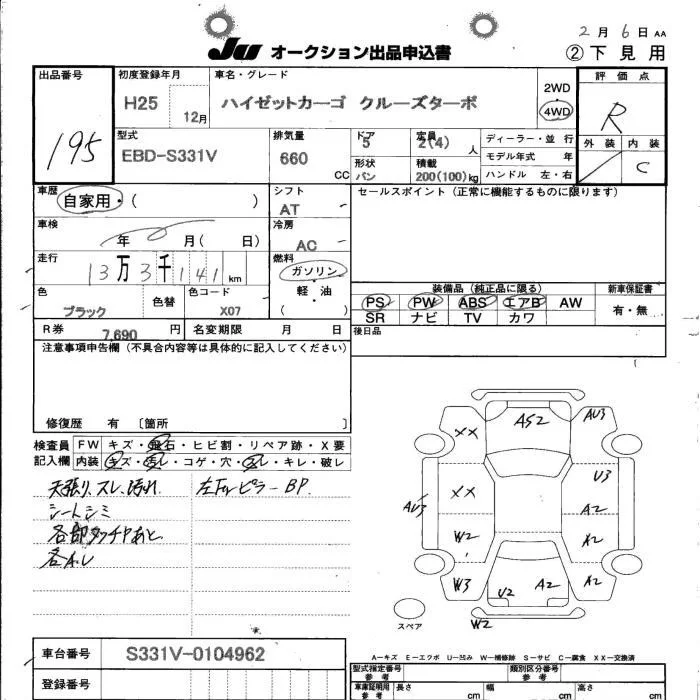 2月6日AA
JU オークション出品申込書 ②下見用
出品番号 初度登録年月 車名・グレード 評価点
195
H25 12月 ハイゼットカーゴ クルーズターボ 2WD 4WD
R
型式 排気量 ドア 定員 ディーラー・並行 外装 内装
EBD-S331V 660 CC 5 2(4) 人 モデル年式 年
形状 積載 ハンドル 左・右 C
バン 200(100)kg
車歴 自家用・( ) シフト セールスポイント (正常に機能するものに限ります)
AT
車検 年 月( 日) 冷房
AC
走行 13万3千141km 燃料
ガソリン
軽・油
( )
装備品 (純正品に限る) 新車保証書
色 色替 色コード PS PW ABS エアB AW 有・無
ブラック X07 SR ナビ TV カワ
R券 7,690 円 名変期限 月 日 後日品
注意事項申告欄 (不具合内容等は具体的に記入してください)
修復歴 有 〔箇所 〕
検査員 FW キズ・飛石・ヒビ割・リペア跡・X要
記入欄 内装 キズ・汚レ・コゲ・穴・スレ・キレ・破レ
天張り、スレ、汚れ
シートシミ
各部タッチアあと
各A.U
BP
AS2
AU3
XX
U3
XX
AU3
A2
W2
A2
W3
U2
A2
A2
W2
スペア
A－キズ E－エクボ U－凹み W－補修跡 S－サビ C－腐食 XX－交換済
車台番号 S331V-0104962
登録番号
型式指定番号 参考 類別区分番号 参考
車庫証明用 参考 長さ cm 幅 cm 高さ cm